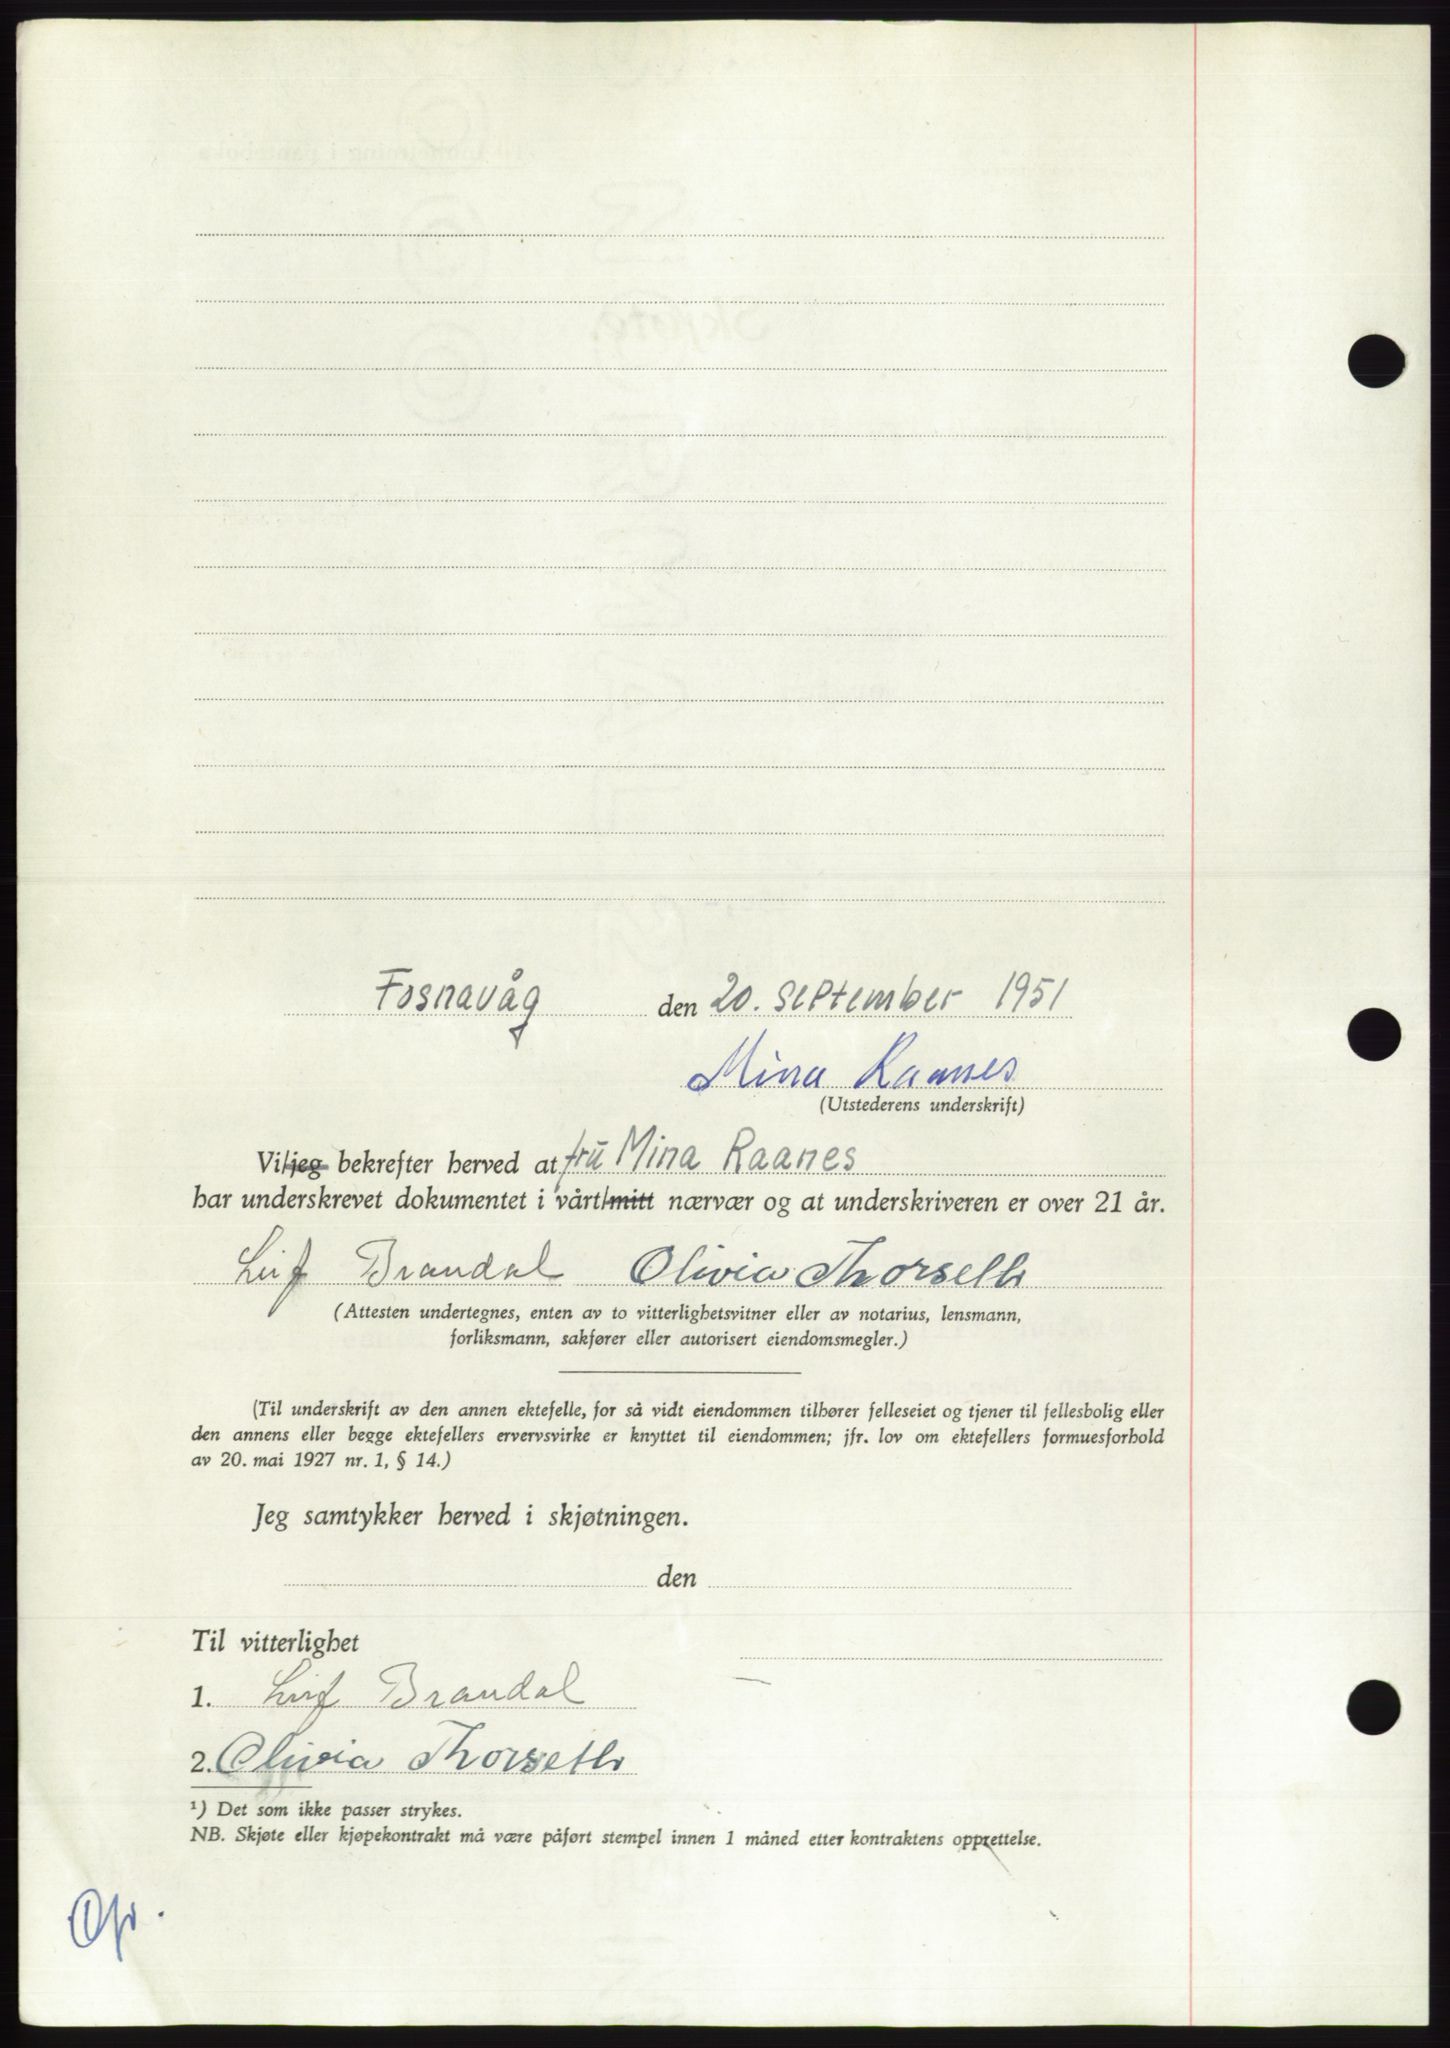 Fosnavåg den 20. september 1951
Mina Raanes
(Utstederens underskrift)
Vi/jeg bekrefter herved at fru Mina Raanes
har underskrevet dokumentet i vårt/mitt nærvær og at underskriveren er over 21 år.
Leif Brandal Olivia Thorseth
(Attesten undertegnes, enten av to vitterlighetsvitner eller av notarius, lensmann,
forliksmann, sakfører eller autorisert eiendomsmegler.)
(Til underskrift av den annen ektefelle, for så vidt eiendommen tilhører felleseiet og tjener til fellesbolig eller
den annens eller begge ektefellers ervervsvirke er knyttet til eiendommen; jfr. lov om ektefellers formuesforhold
av 20. mai 1927 nr. 1, § 14.)
Jeg samtykker herved i skjøtningen.
den
Til vitterlighet
1. Leif Brandal
2. Olivia Thorseth
¹) Det som ikke passer strykes.
NB. Skjøte eller kjøpekontrakt må være påført stempel innen 1 måned etter kontraktens opprettelse.